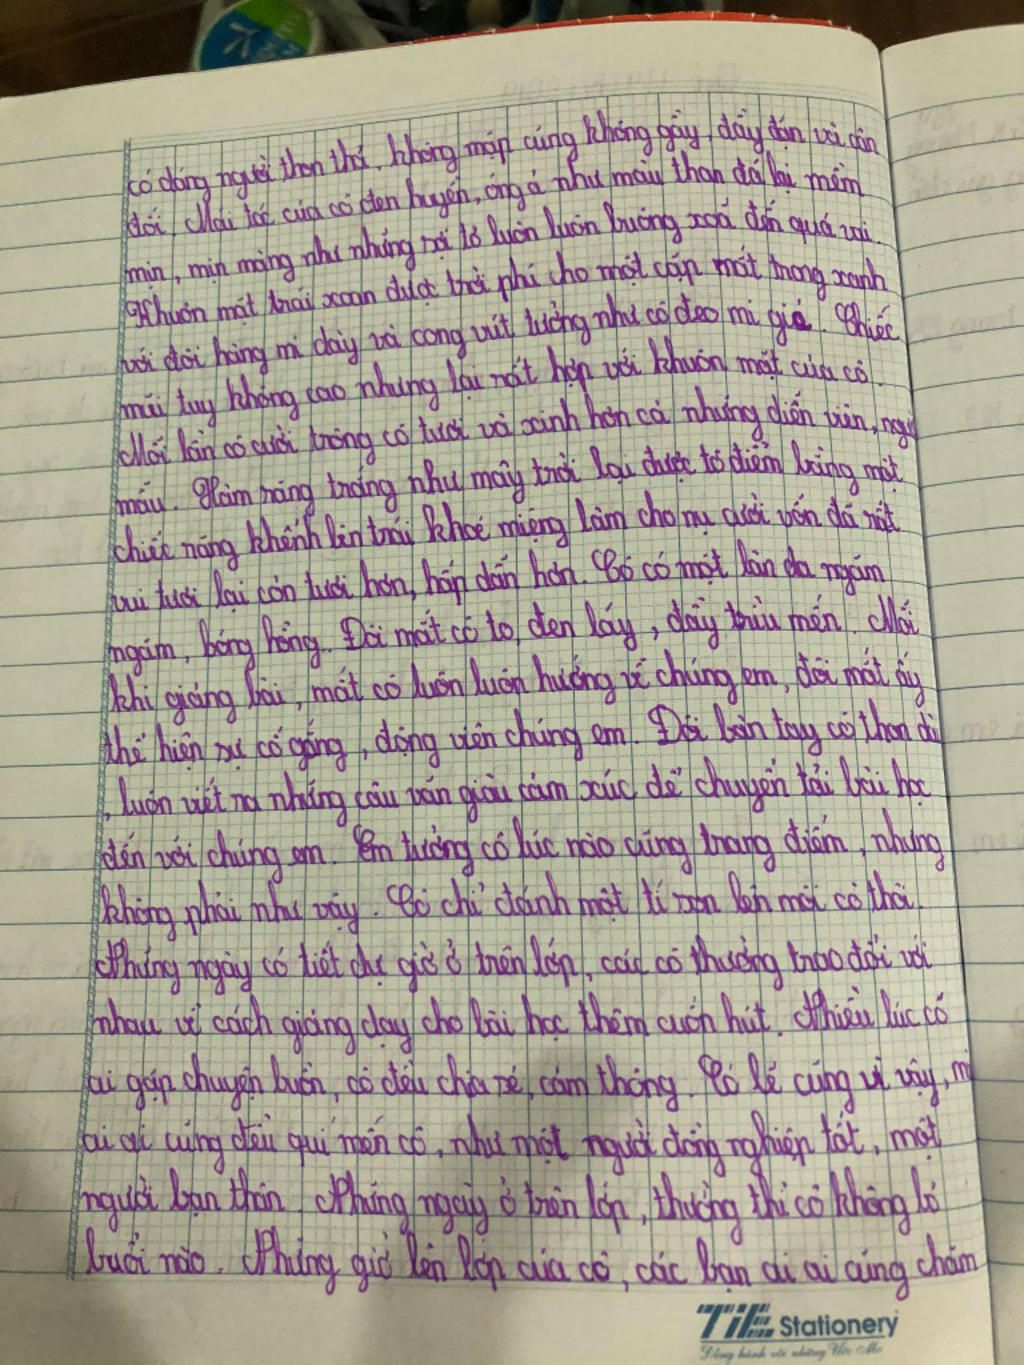 có dáng người thon thả, không mập cũng không gầy, đầy đặn và cân
đối. Mái tóc của cô đen huyền, óng ả như màu than đá lại mềm
mịn, mịn màng như những sợi tơ luôn luôn buông xoã đến quá vai.
Khuôn mặt trái xoan được trời phú cho một cặp mắt trong xanh
với đôi hàng mi dày và cong vút tưởng như cô đeo mi giả. Chiếc
mũi tuy không cao nhưng lại rất hợp với khuôn mặt của cô.
Mỗi lần cô cười trông cô tươi và xinh hơn cả những diễn viên, người
mẫu. Hàm răng trắng như mây trời lại được tô điểm bằng một
chiếc răng khểnh bên trái khoé miệng làm cho nụ cười vốn đã rất
vui tươi lại còn tươi hơn, hấp dẫn hơn. Cô có một làn da ngăm
ngăm, bóng hồng. Đôi mắt cô to, đen láy, đầy trìu mến. Mỗi
khi giảng bài, mắt cô luôn luôn hướng về chúng em, đôi mắt ấy
thể hiện sự cố gắng, động viên chúng em. Đôi bàn tay cô thon dài
, luôn viết ra những câu văn giàu cảm xúc để chuyển tải bài học
đến với chúng em. Em tưởng cô lúc nào cũng trang điểm, nhưng
không phải như vậy. Cô chỉ đánh một tí son lên môi có thôi.
Những ngày có tiết dự giờ ở trên lớp, các cô thường trao đổi với
nhau về cách giảng dạy cho bài học thêm cuốn hút. Nhiều lúc có
ai gặp chuyện buồn, cô đều chia sẻ, cảm thông. Có lẽ cũng vì vậy, mà
ai ai cũng đều quí mến cô, như một người đồng nghiệp tốt, một
người bạn thân. Những ngày ở trên lớp, thường thì cô không bỏ
buổi nào. Những giờ lên lớp của cô, các bạn ai ai cũng chăm
TiE Stationery
Đồng hành với những Ước Mơ